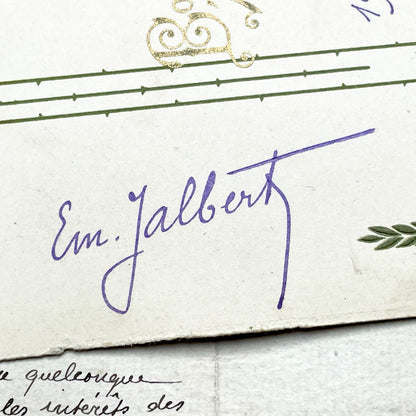 19
Em. Jalbert
quelconque
les intérêts des